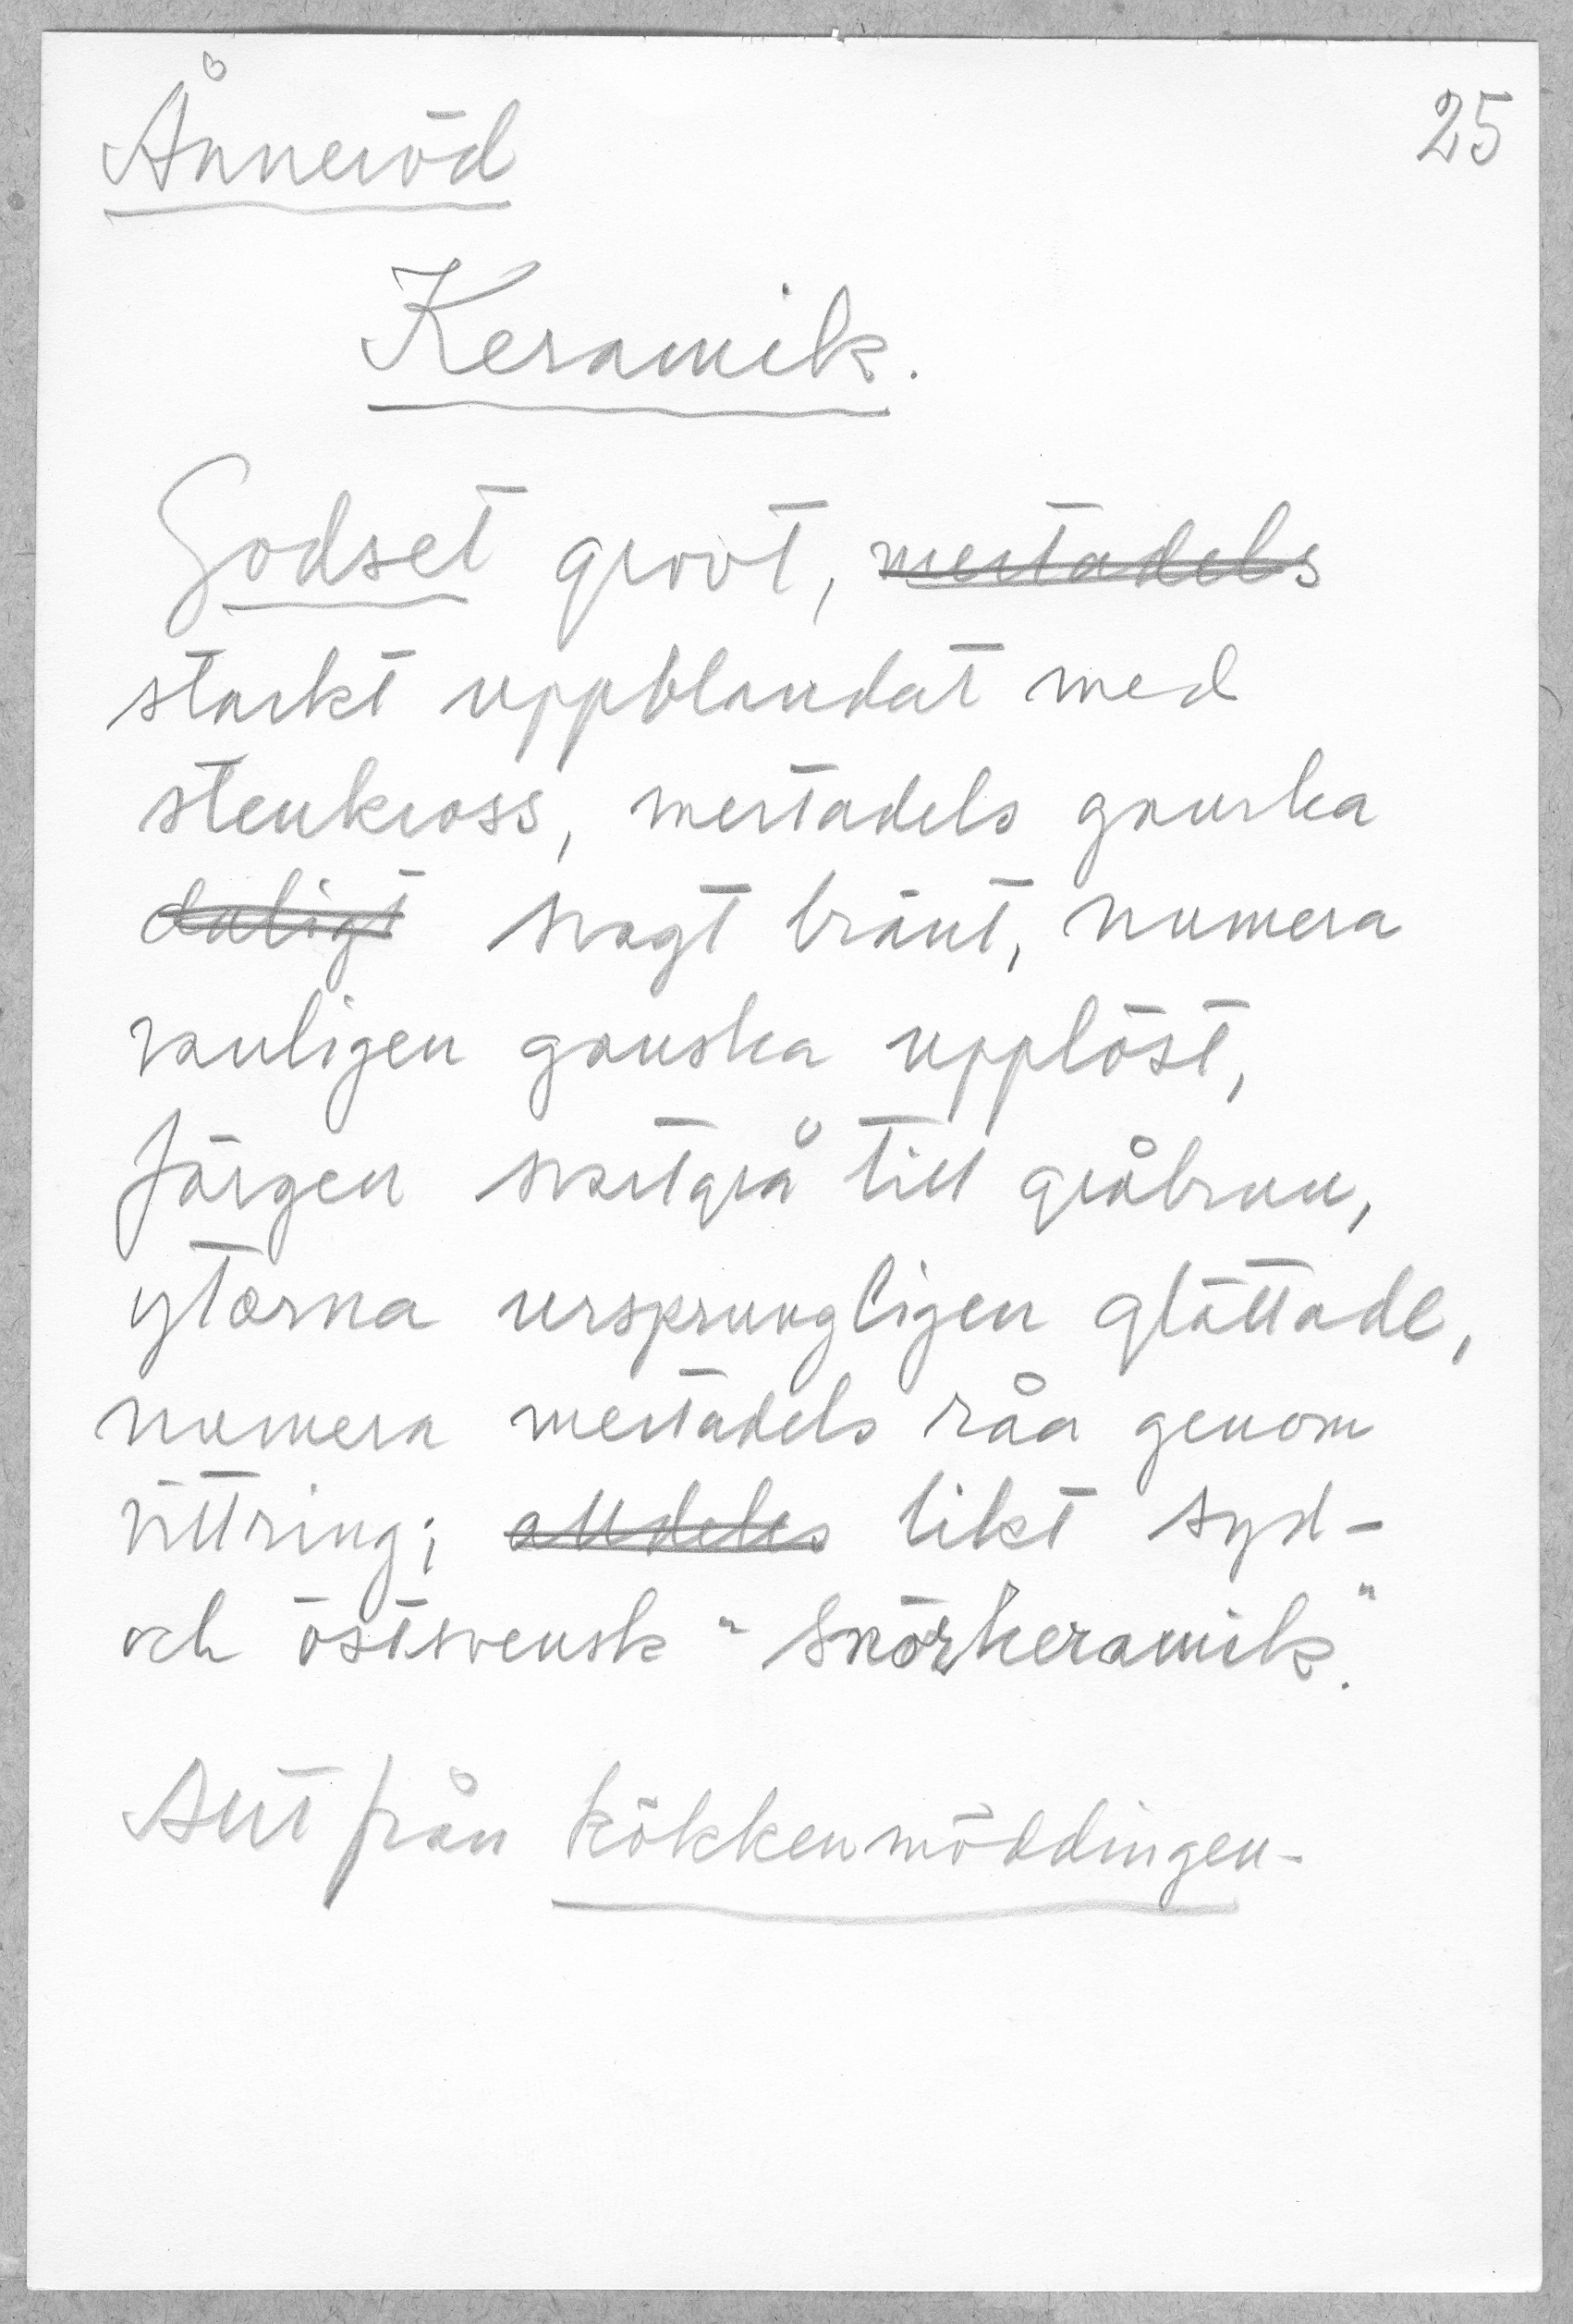 Ånneröd
25
Keramik.
Godset grovt, mestadels
starkt uppblandat med
stenkross, mestadels ganska
daligt svagt bränt, numera
vanligen ganska upplöst,
färgen svartgrå till gråbrun,
ytorna ursprungligen glättade,
numera mestadels råa genom
vittring; alldeles likt syd-
och östsvensk "Snörkeramik."
Allt från kökkenmöddingen-